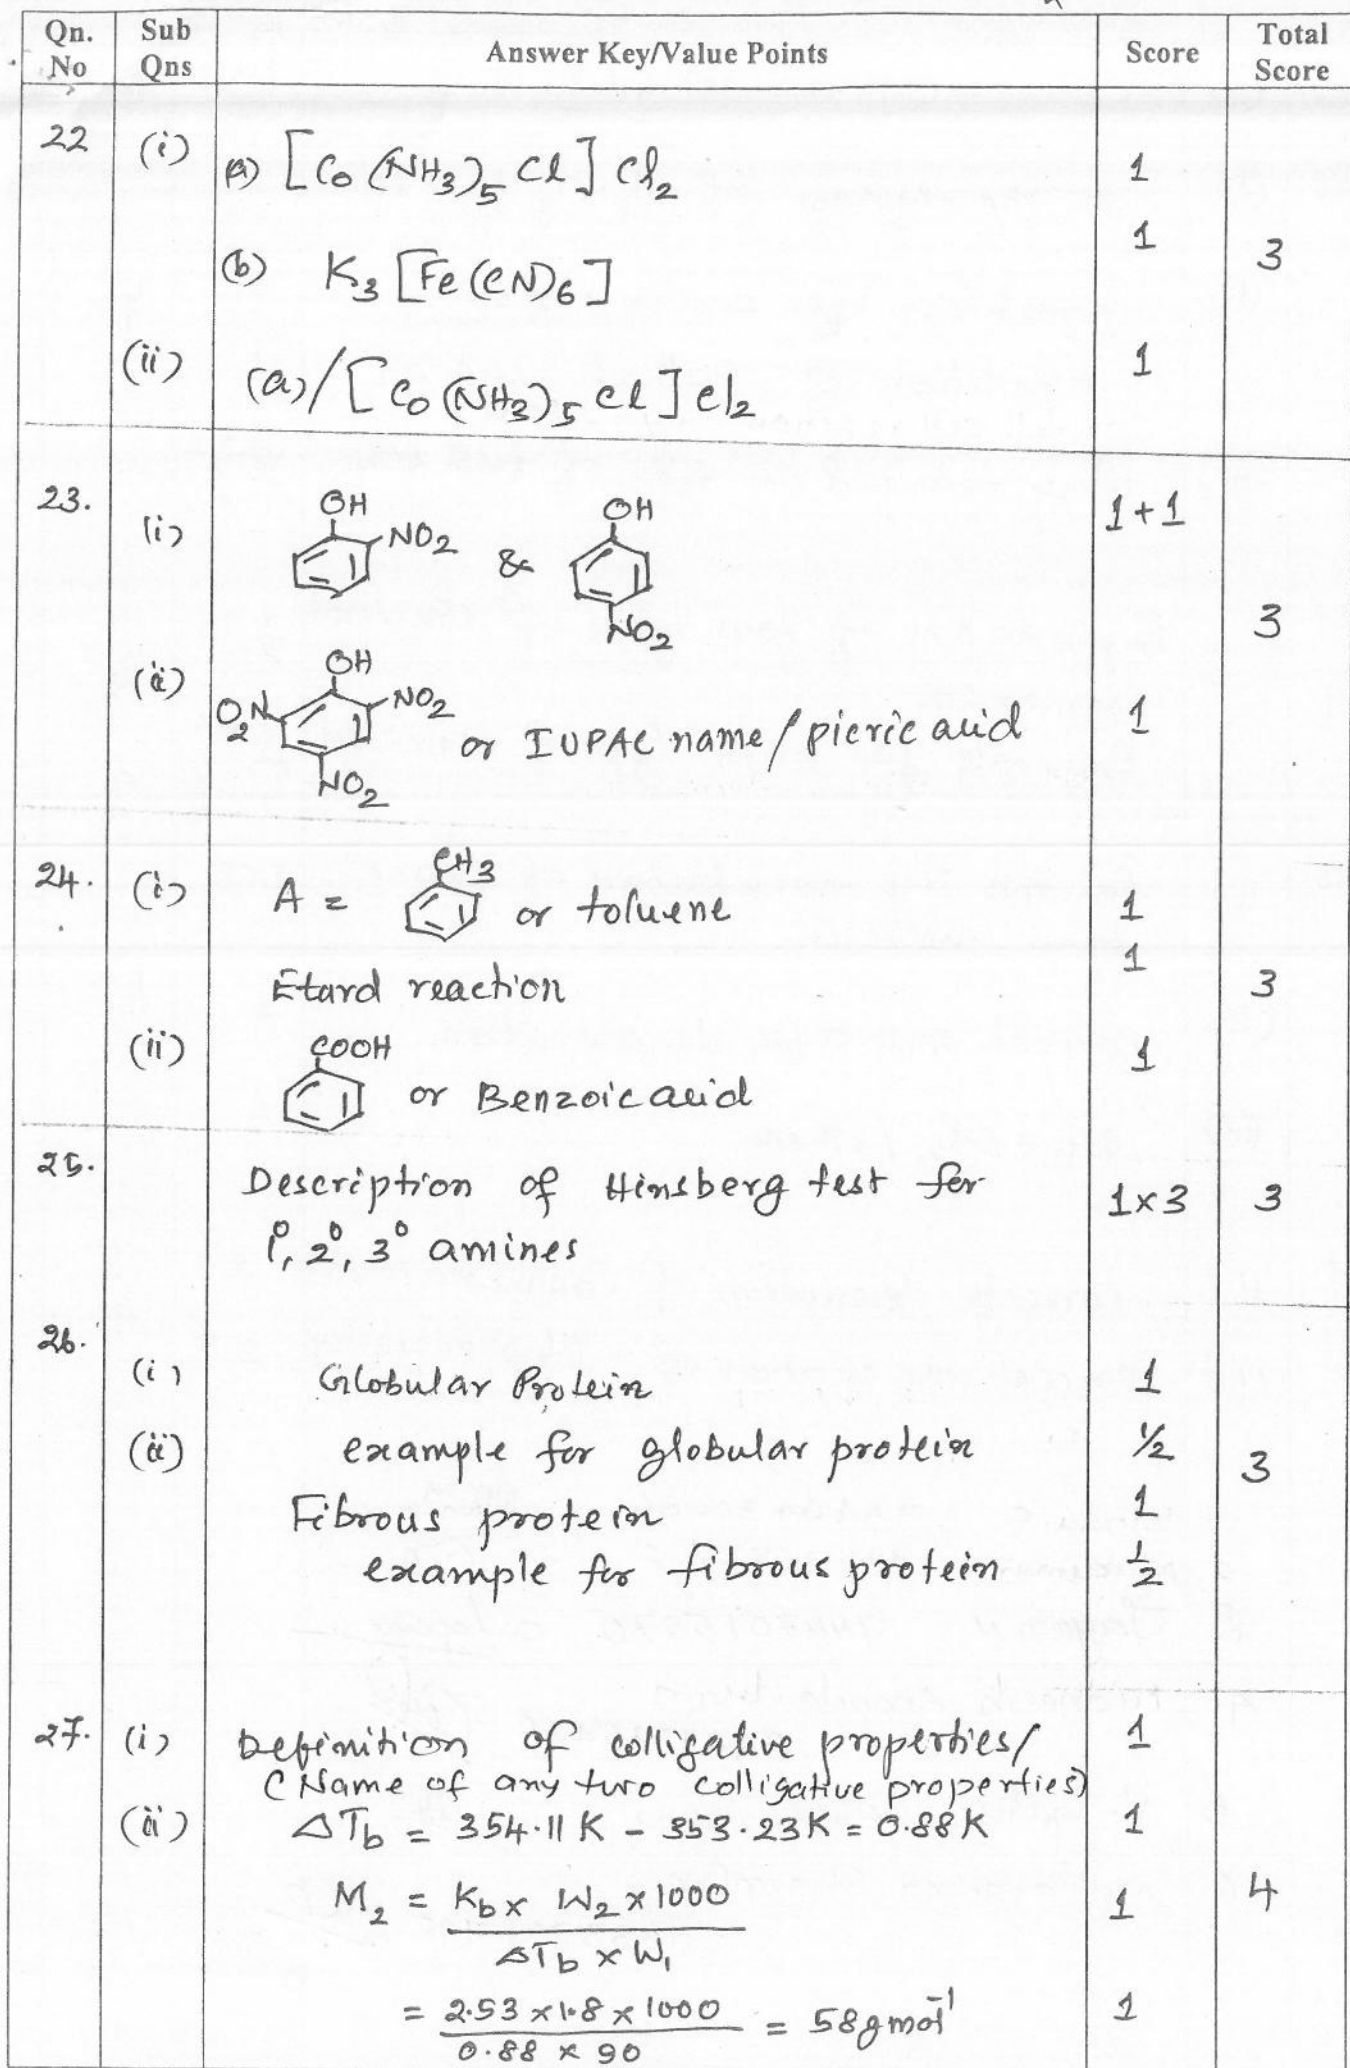 Qn. No Sub Qns Answer Key/Value Points Score Total Score
22 (i) (a) [Co(NH3)5 Cl] Cl2 1
(b) K3 [Fe(CN)6] 1 3
(ii) (a)/[Co(NH3)5 Cl] Cl2 1
23. (i) OH NO2 & OH NO2 1+1
3
(ii) OH O2N NO2 NO2 or IUPAC name/picric acid 1
24. (i) A = CH3 or toluene 1
Etard reaction 1 3
(ii) COOH or Benzoic acid 1
25. Description of Hinsberg test for 1×3 3
1°, 2°, 3° amines
26.
(i) Globular Protein 1
(ii) example for globular protein ½ 3
Fibrous protein 1
example for fibrous protein ½
27. (i) Definition of colligative properties/ 1
(Name of any two colligative properties)
(ii) ΔTb = 354.11 K - 353.23K = 0.88K 1
M2 = Kb x W2 x 1000 1 4
ΔTb x W1
= 2.53 x 1.8 x 1000 = 58 g mol-1 1
0.88 x 90